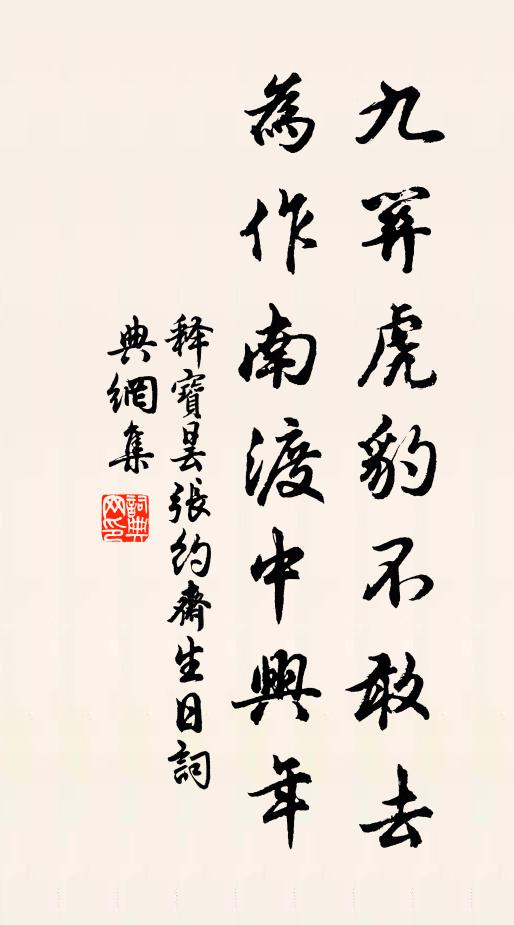 九關虎豹不敢去
為作南渡中興年
釋寶曇張約齋生日詞
典網集
詞典網印